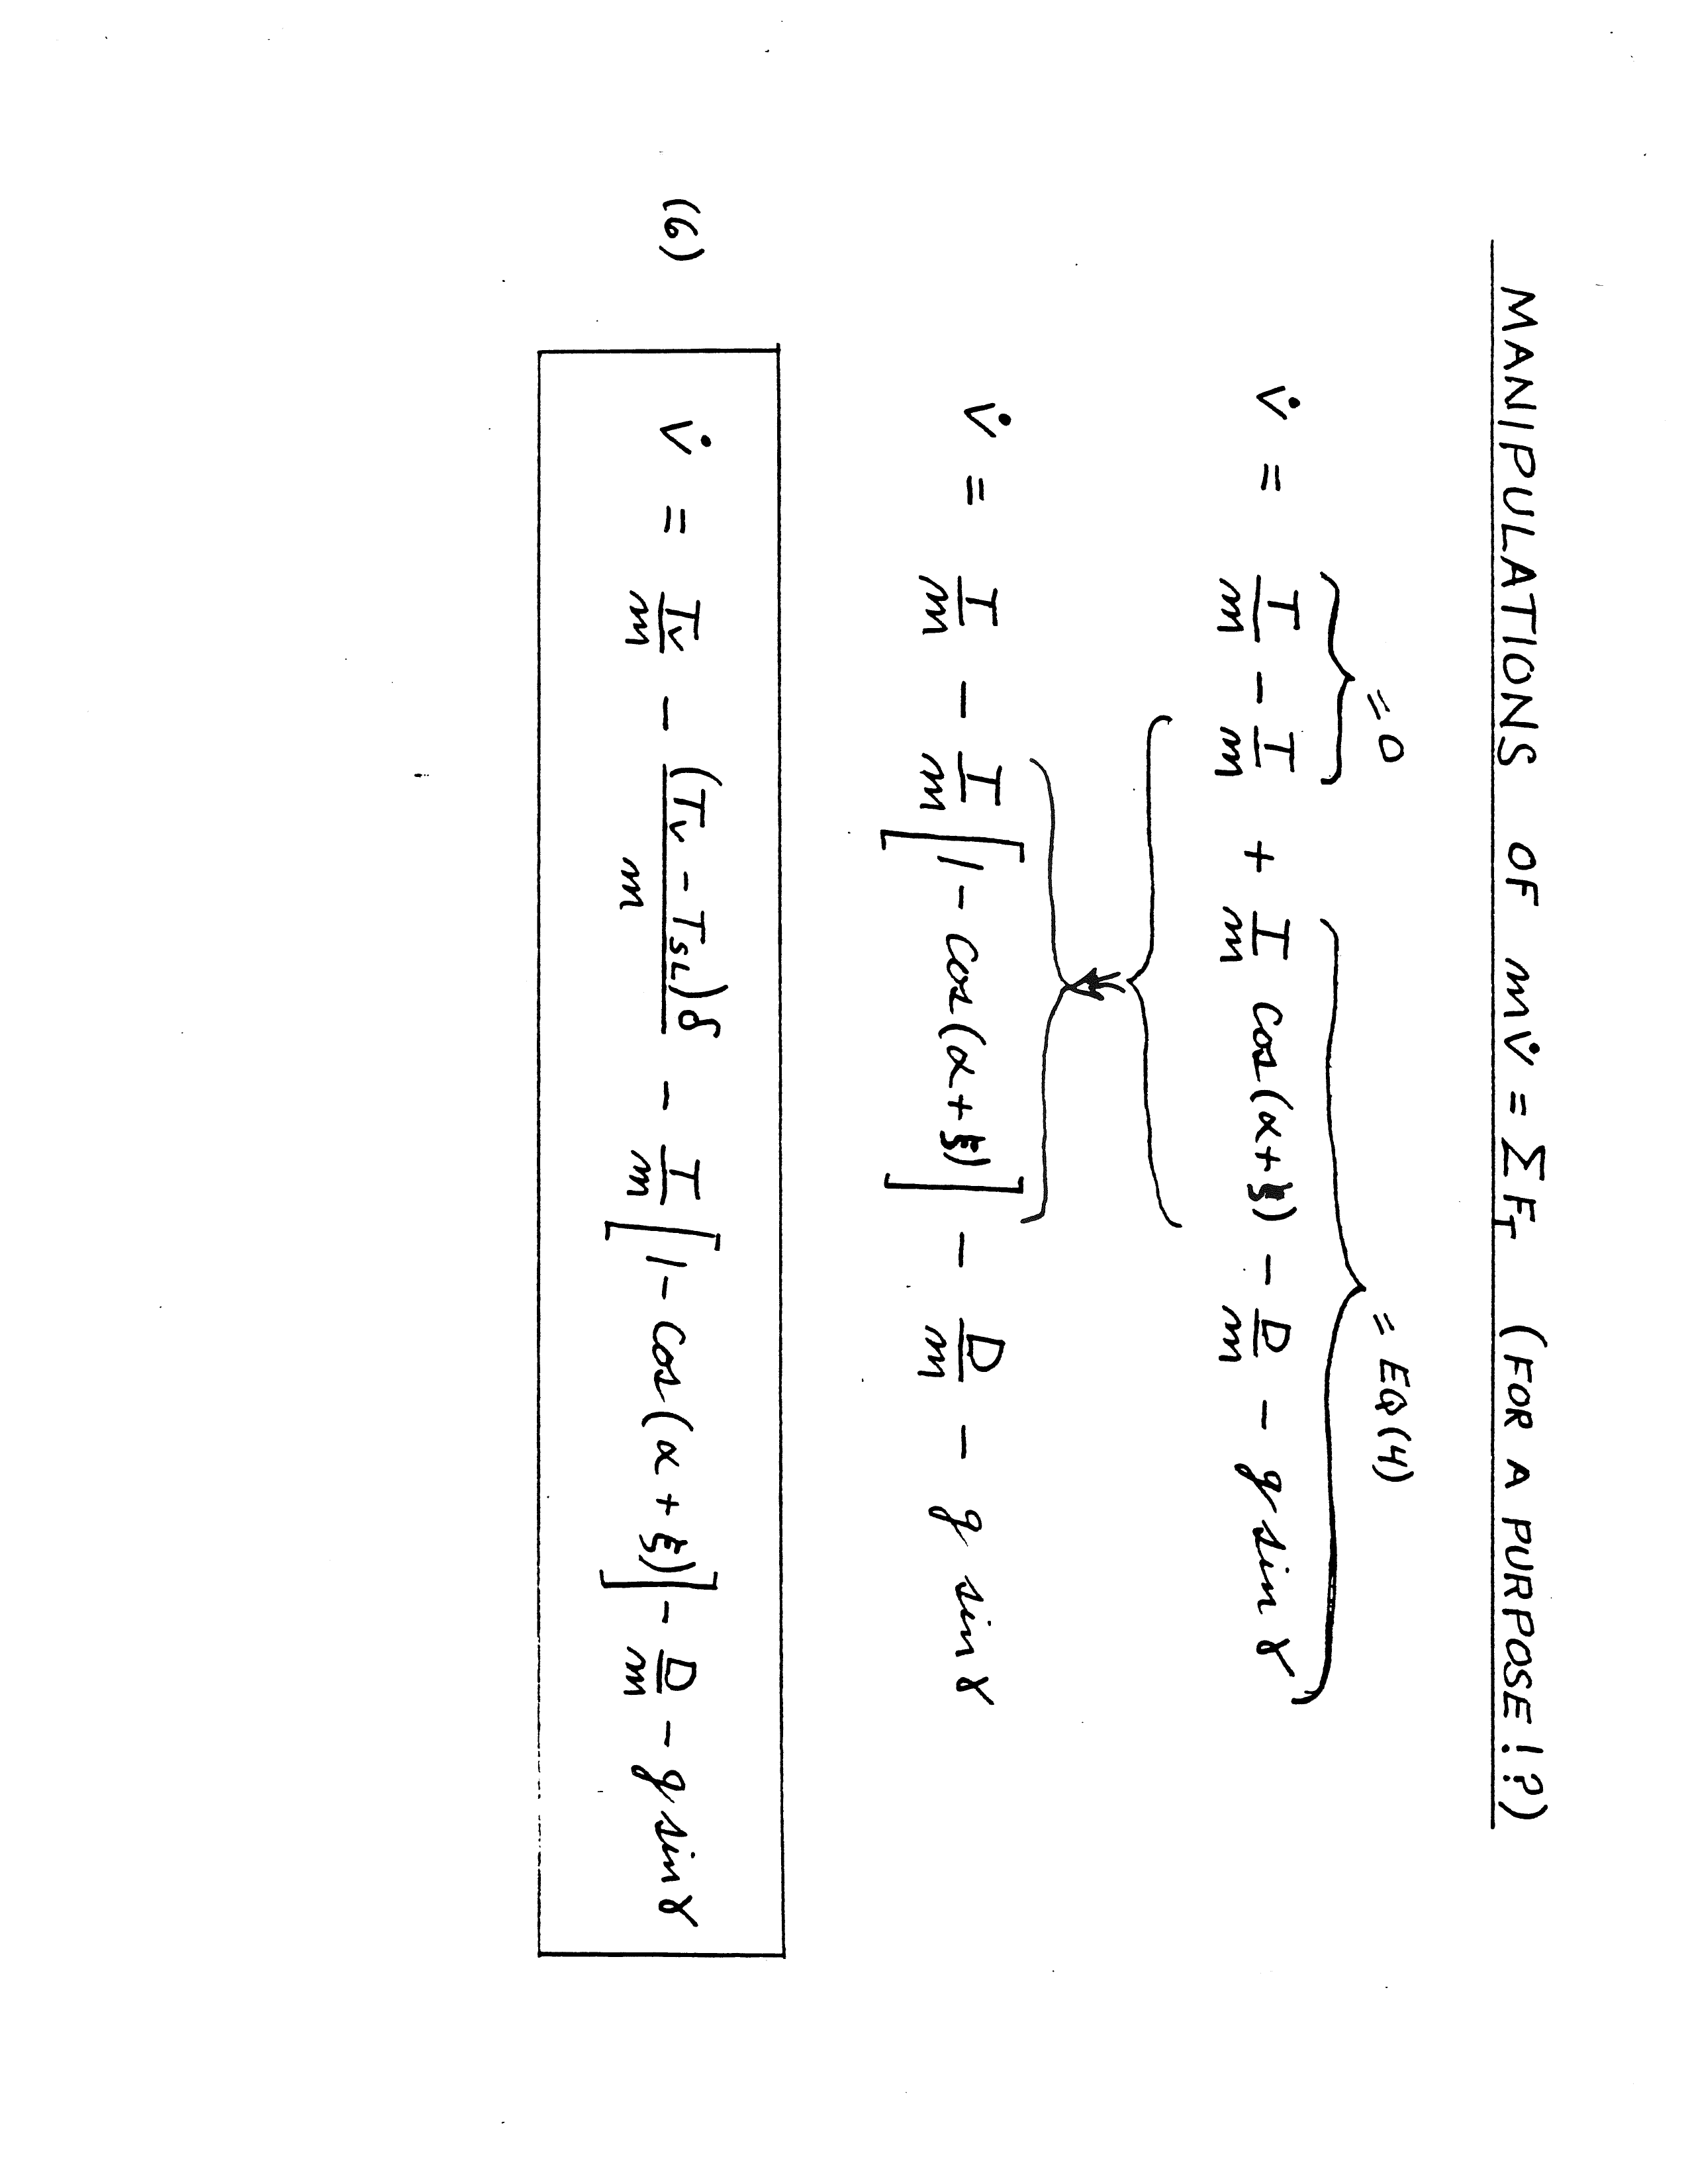 MANIPULATIONS OF mV̇ = ΣF_T (FOR A PURPOSE!?)
= 0 = EQ(4)
V̇ = T/m - T/m + T/m cos(α+ξ) - D/m - g sin γ
V̇ = T/m - T/m [1 - cos(α+ξ)] - D/m - g sin γ
(6) V̇ = T_V/m - (T_V - T_SL)δ/m - T/m [1 - cos(α+ξ)] - D/m - g sin γ